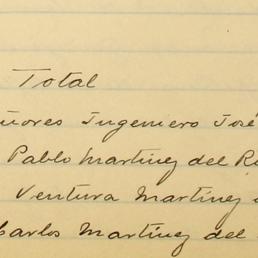 Total
ñores Ingeniero José
Pablo Martínez del Rí
Ventura Martínez
Carlos Martínez del